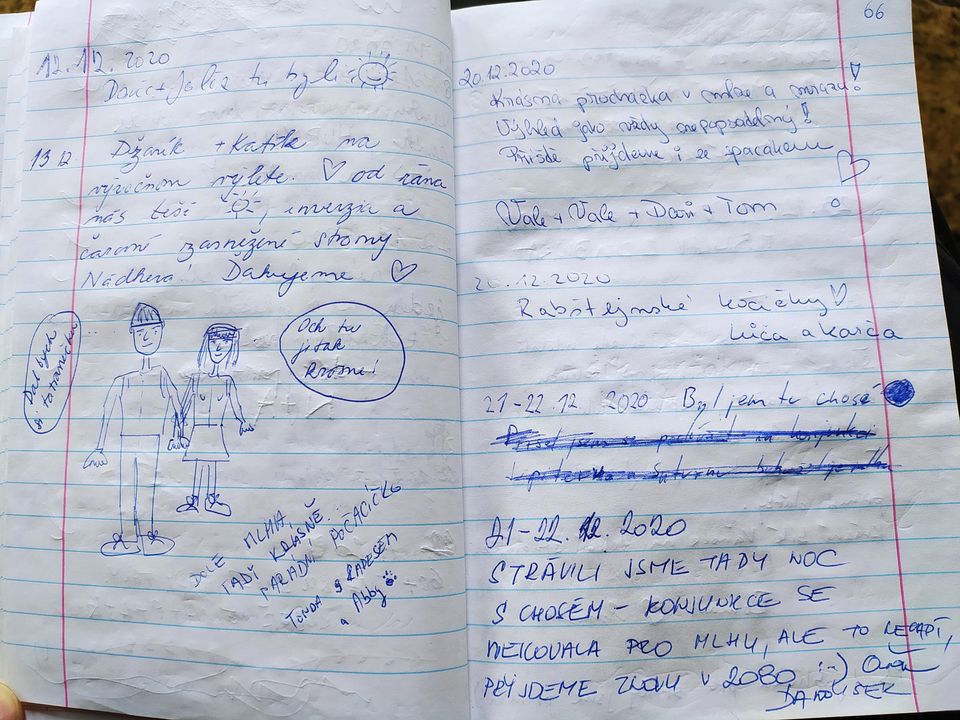 12.12.2020
Dan+Julie tu byli
13 12. Džaník + Katka na
výročnom výlete. ♡ od rána
nás teší ☼, inverzia a
čarovné zasnežené stromy.
Nádhera! Ďakujeme ♡
Dal bych
si
Och tu
je tak
krásne!
DOLE MLHA,
TADY KRÁSNĚ
PARÁDNÍ POČASÍČKO
TONDA S RADESEM
a Abby
66
20.12.2020
Krásná procházka v mlze a mrazu!
Výhled jako vždy nepopsatelný!
Příště přijdeme i se spacákem
Vale + Vale + Dan + Tom
20.12.2020
Rabštejnské kočičky ♡
Lůca a Karča
21-22.12. 2020 Byl jem tu chosé
21-22.12.2020
STRÁVILI JSME TADY NOC
S CHOSÉM – KONJUNKCE SE
NEKOVALA PRO MLHU, ALE TO NEVADÍ,
PŘIJDEME ZNOVU V 2080 :-)
DANOUSEK